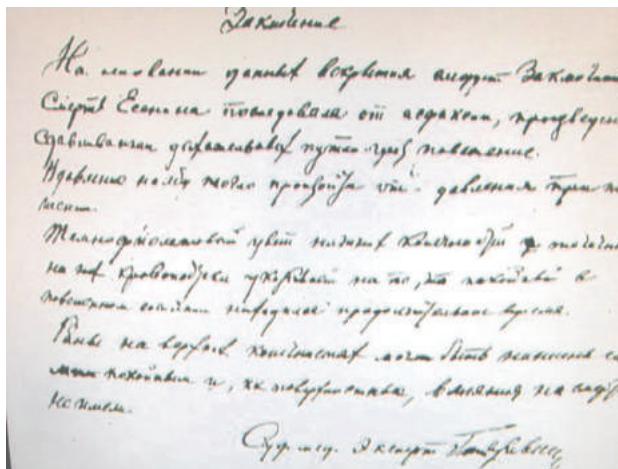 Заключение
На основании данных вскрытия следует заключить
Смерть Есенина последовала от асфиксии, произведен
сдавливанием дыхательных путей через повешение.
Вдавление на лбу могло произойти от давления при по
шении.
Темнофиолетовый цвет нижних конечностей точечные
на них кровоподтеки указывают на то, что покойный в
повешенном состоянии находился продолжительное время.
Раны на верхних конечностях могли быть нанесены са
мим покойным и, как поверхностные, влияния на смерть
не имели.
Суд. мед. эксперт Гиляревский